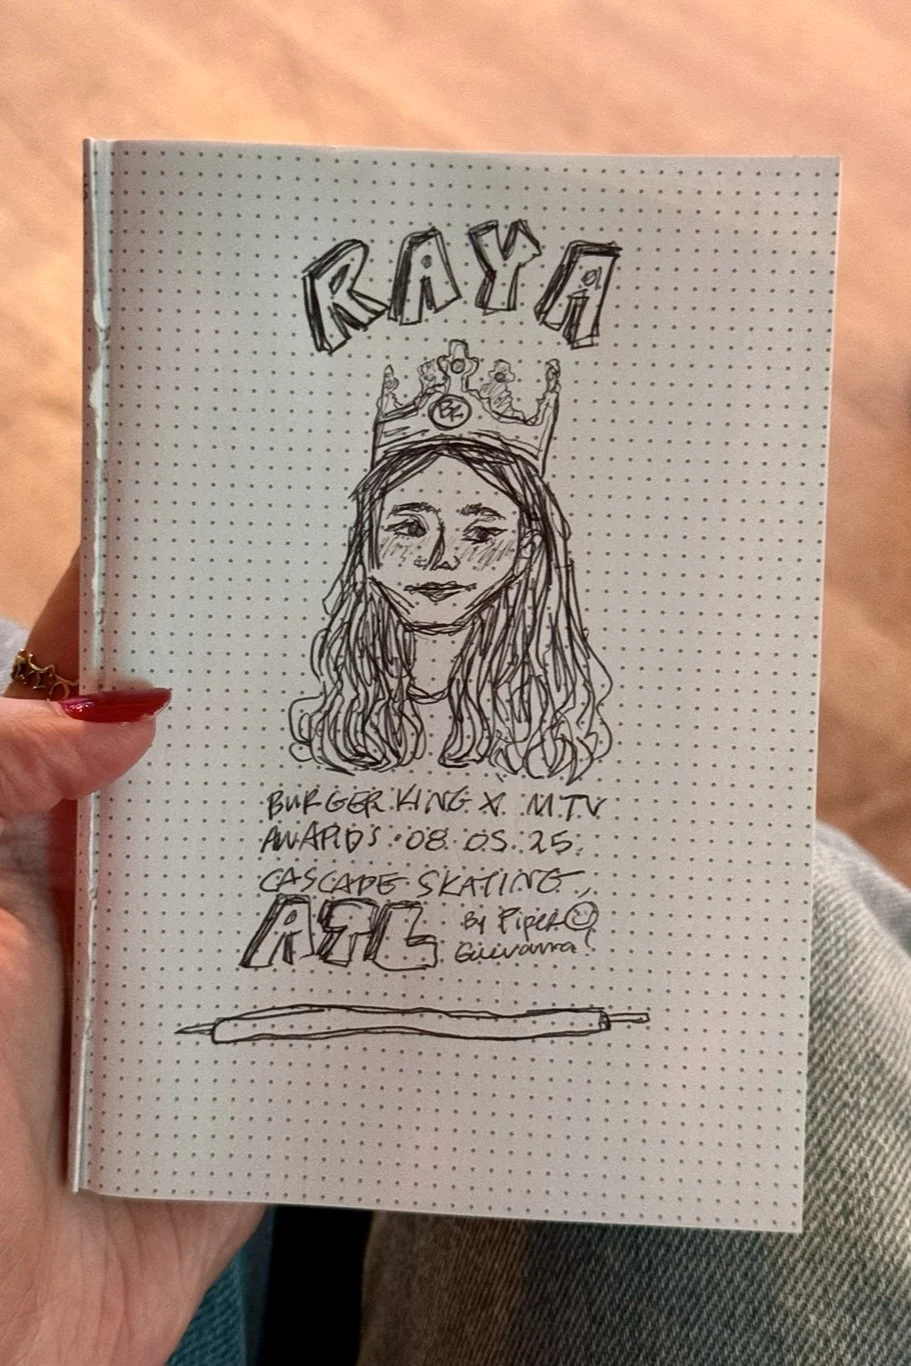 RAYA
BK
BURGER KING X MTV
AWARDS · 08. 05. 25.
CASCADE SKATING,
ATL
By Piper